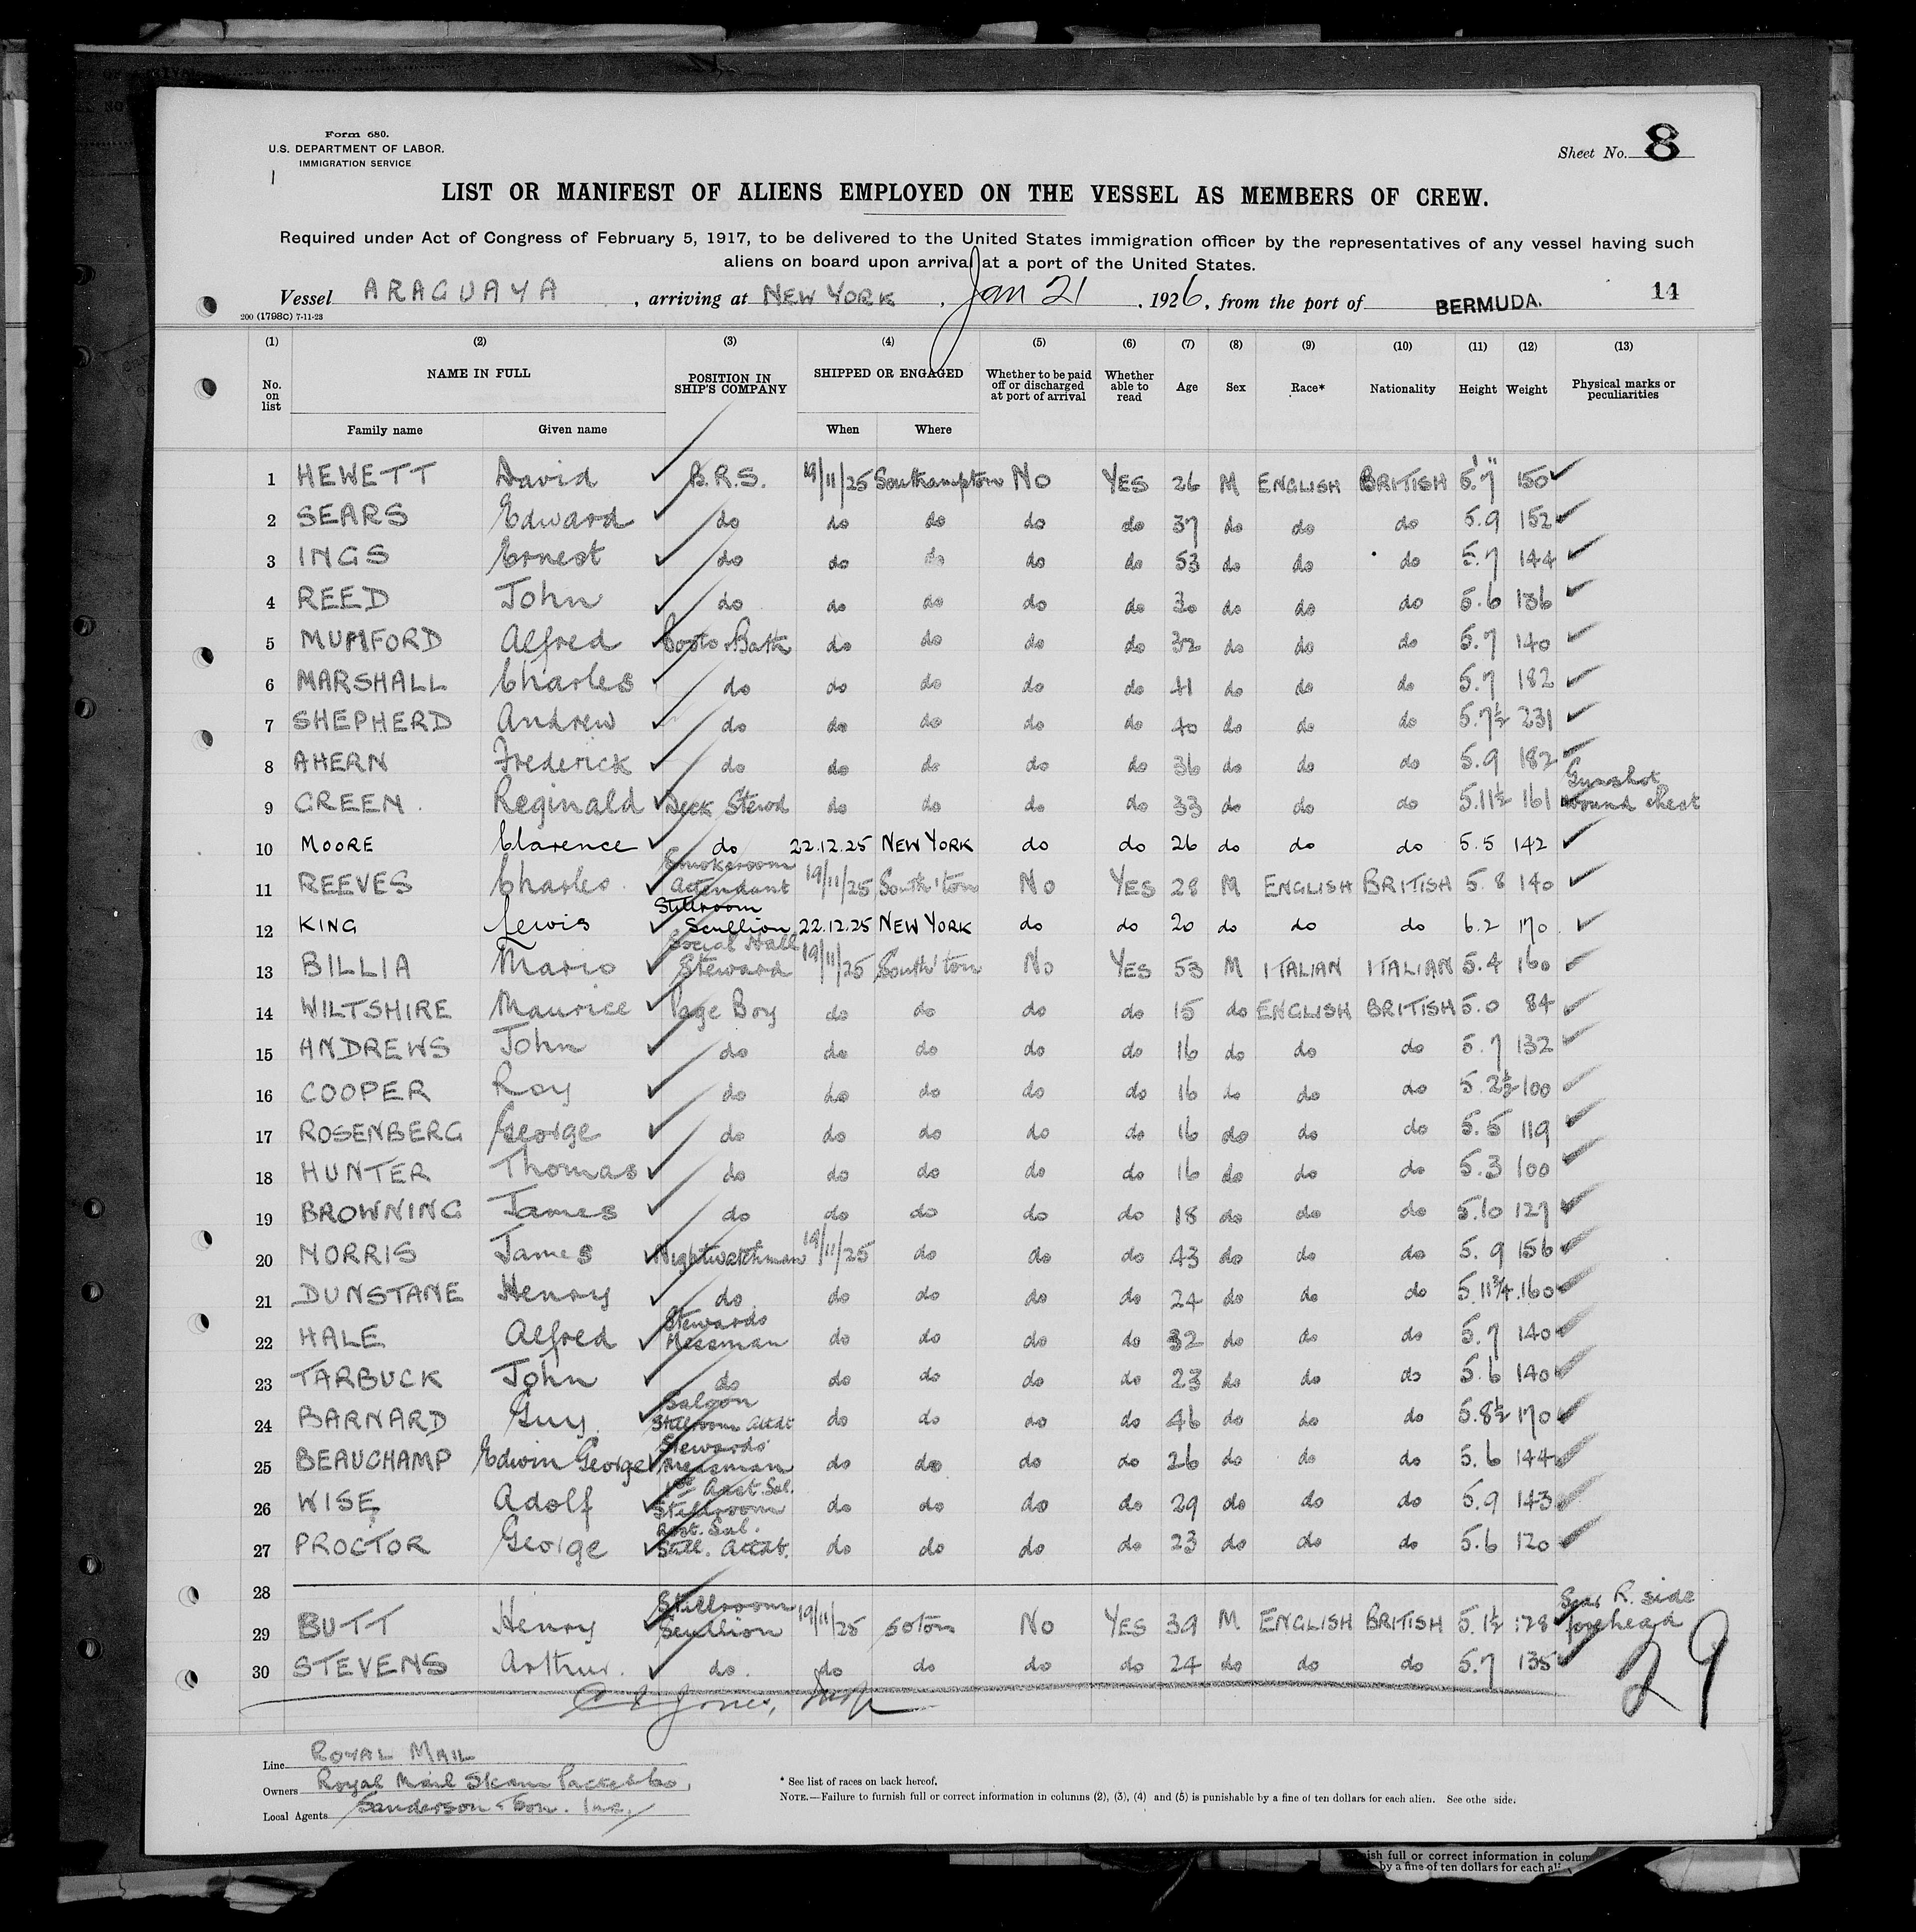 Form 680.
U.S. DEPARTMENT OF LABOR.
IMMIGRATION SERVICE
Sheet No. 8
LIST OR MANIFEST OF ALIENS EMPLOYED ON THE VESSEL AS MEMBERS OF CREW.
Required under Act of Congress of February 5, 1917, to be delivered to the United States immigration officer by the representatives of any vessel having such
aliens on board upon arrival at a port of the United States.
Vessel ARAGUAYA, arriving at NEW YORK, Jan 21, 1926, from the port of BERMUDA. 14
200 (1798C) 7-11-23
(1) (2) (3) (4) (5) (6) (7) (8) (9) (10) (11) (12) (13)
No. on list NAME IN FULL POSITION IN SHIP'S COMPANY SHIPPED OR ENGAGED Whether to be paid off or discharged at port of arrival Whether able to read Age Sex Race* Nationality Height Weight Physical marks or peculiarities
Family name Given name When Where
1 HEWETT David B.R.S. 19/11/25 Southampton No YES 26 M ENGLISH BRITISH 5'.7" 150
2 SEARS Edward do do do do do 37 do do do 5.9 152
3 INGS Ernest do do do do do 53 do do do 5.7 144
4 REED John do do do do do 30 do do do 5.6 136
5 MUMFORD Alfred Boots & Bath do do do do 32 do do do 5.7 140
6 MARSHALL Charles do do do do do 41 do do do 5.7 182
7 SHEPHERD Andrew do do do do do 40 do do do 5.7½ 231
8 AHERN Frederick do do do do do 36 do do do 5.9 182
9 GREEN. Reginald Deck Stewd do do do do 33 do do do 5.11½ 161 Gunshot wound chest
10 MOORE Clarence do 22.12.25 NEW YORK do do 26 do do do 5.5 142
11 REEVES Charles. Smokeroom Attendant 19/11/25 South'ton No YES 28 M ENGLISH BRITISH 5.8 140
12 KING Lewis Stillroom Scullion 22.12.25 NEW YORK do do 20 do do do 6.2 170
13 BILLIA Mario Social Hall Steward 19/11/25 South'ton No YES 53 M ITALIAN ITALIAN 5.4 160
14 WILTSHIRE Maurice Page Boy do do do do 15 do ENGLISH BRITISH 5.0 84
15 ANDREWS John do do do do do 16 do do do 5.7 132
16 COOPER Roy do do do do do 16 do do do 5.2½ 100
17 ROSENBERG George do do do do do 16 do do do 5.5 119
18 HUNTER Thomas do do do do do 16 do do do 5.3 100
19 BROWNING James do do do do do 18 do do do 5.10 127
20 NORRIS James Nightwatchman 19/11/25 do do do 43 do do do 5.9 156
21 DUNSTANE Henry do do do do do 24 do do do 5.11¾ 160
22 HALE Alfred Stewards Messman do do do do 32 do do do 5.7 140
23 TARBUCK John do do do do do 23 do do do 5.6 140
24 BARNARD Guy. Saloon Stillroom Attdt do do do do 46 do do do 5.8½ 170
25 BEAUCHAMP Edwin George Stewards' Messman do do do do 26 do do do 5.6 144
26 WISE Adolf 1st Asst. Sal. Stillroom do do do do 29 do do do 5.9 143
27 PROCTOR George Asst. Sal. Still. Attdt. do do do do 23 do do do 5.6 120
28
29 BUTT Henry Stillroom Scullion 19/11/25 Soton No YES 39 M ENGLISH BRITISH 5.1½ 128 Scar R. side forehead
30 STEVENS Arthur. do. do do do do 24 do do do 5.7 135
29
Line ROYAL MAIL
Owners Royal Mail Steam Packet Co,
Local Agents Sanderson & Son. Inc,
* See list of races on back hereof.
NOTE.—Failure to furnish full or correct information in columns (2), (3), (4) and (5) is punishable by a fine of ten dollars for each alien. See othe side.
ish full or correct information in colum
by a fine of ten dollars for each ali